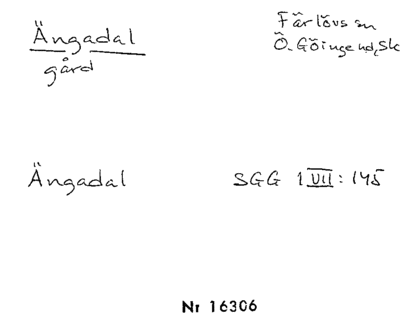 Ängadal
gård
Färlövs sn
Ö. Göinge hd, Sk
Ängadal
SGG 1 VII: 145
Nr 16306